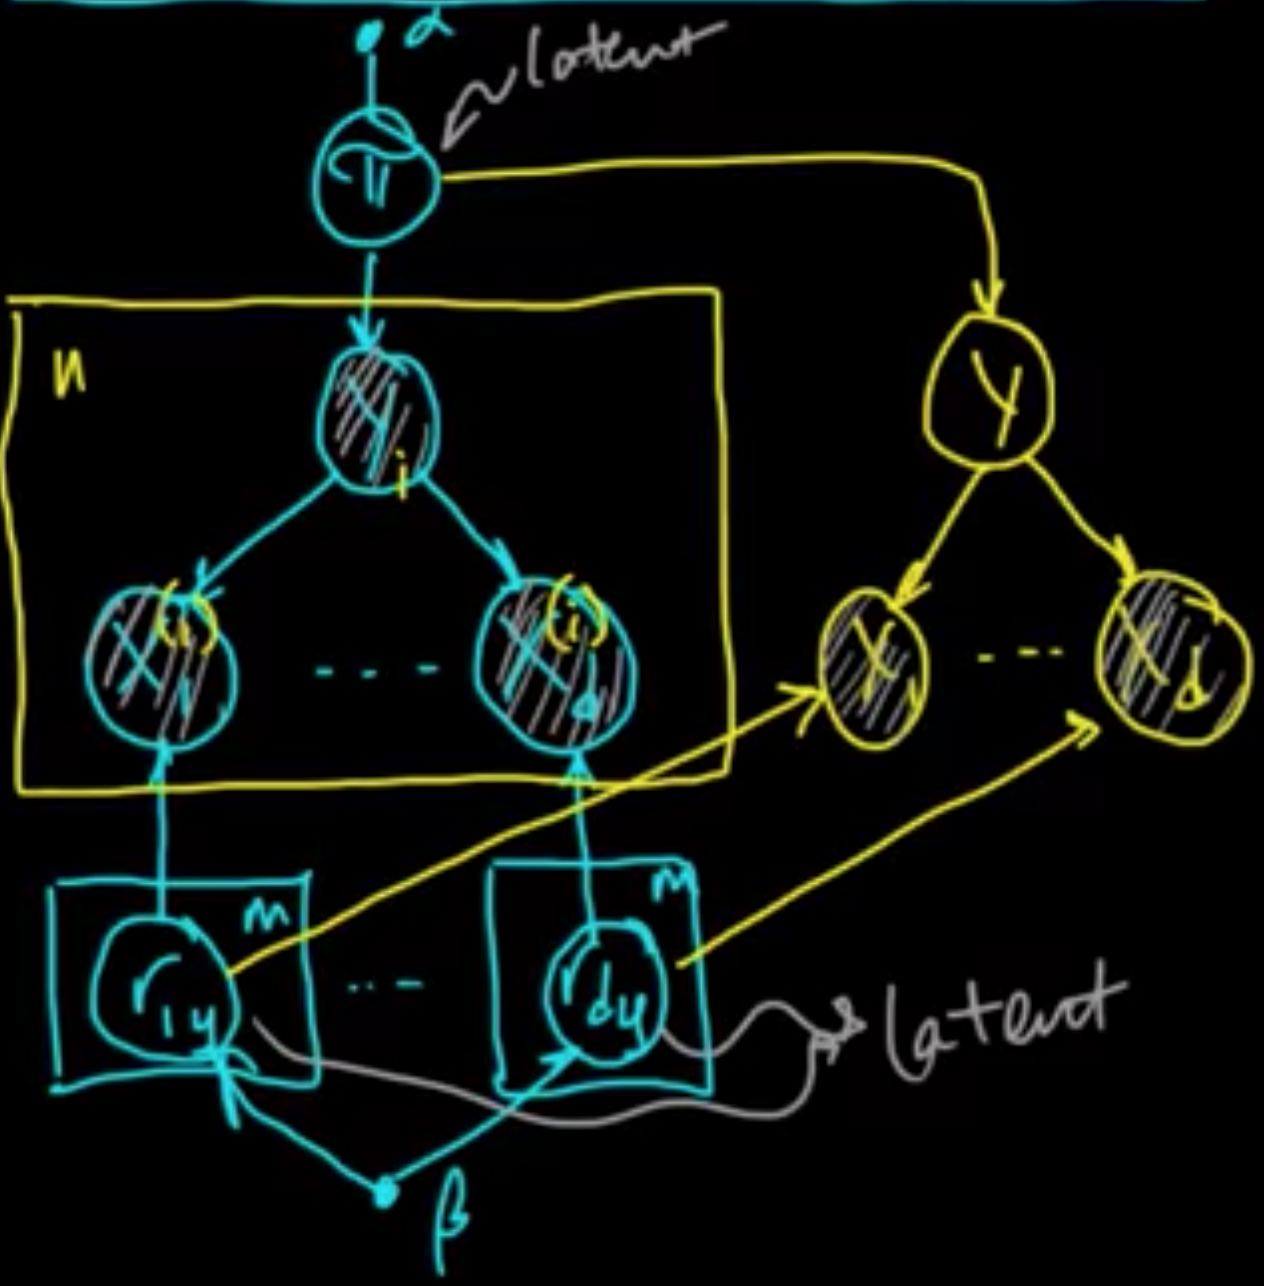 α
latent
π
n
Y i
Y
X 1 (i)
- - -
X d (i)
X 1
- - -
X d
m
m
r 1y
- - -
r dy
latent
β